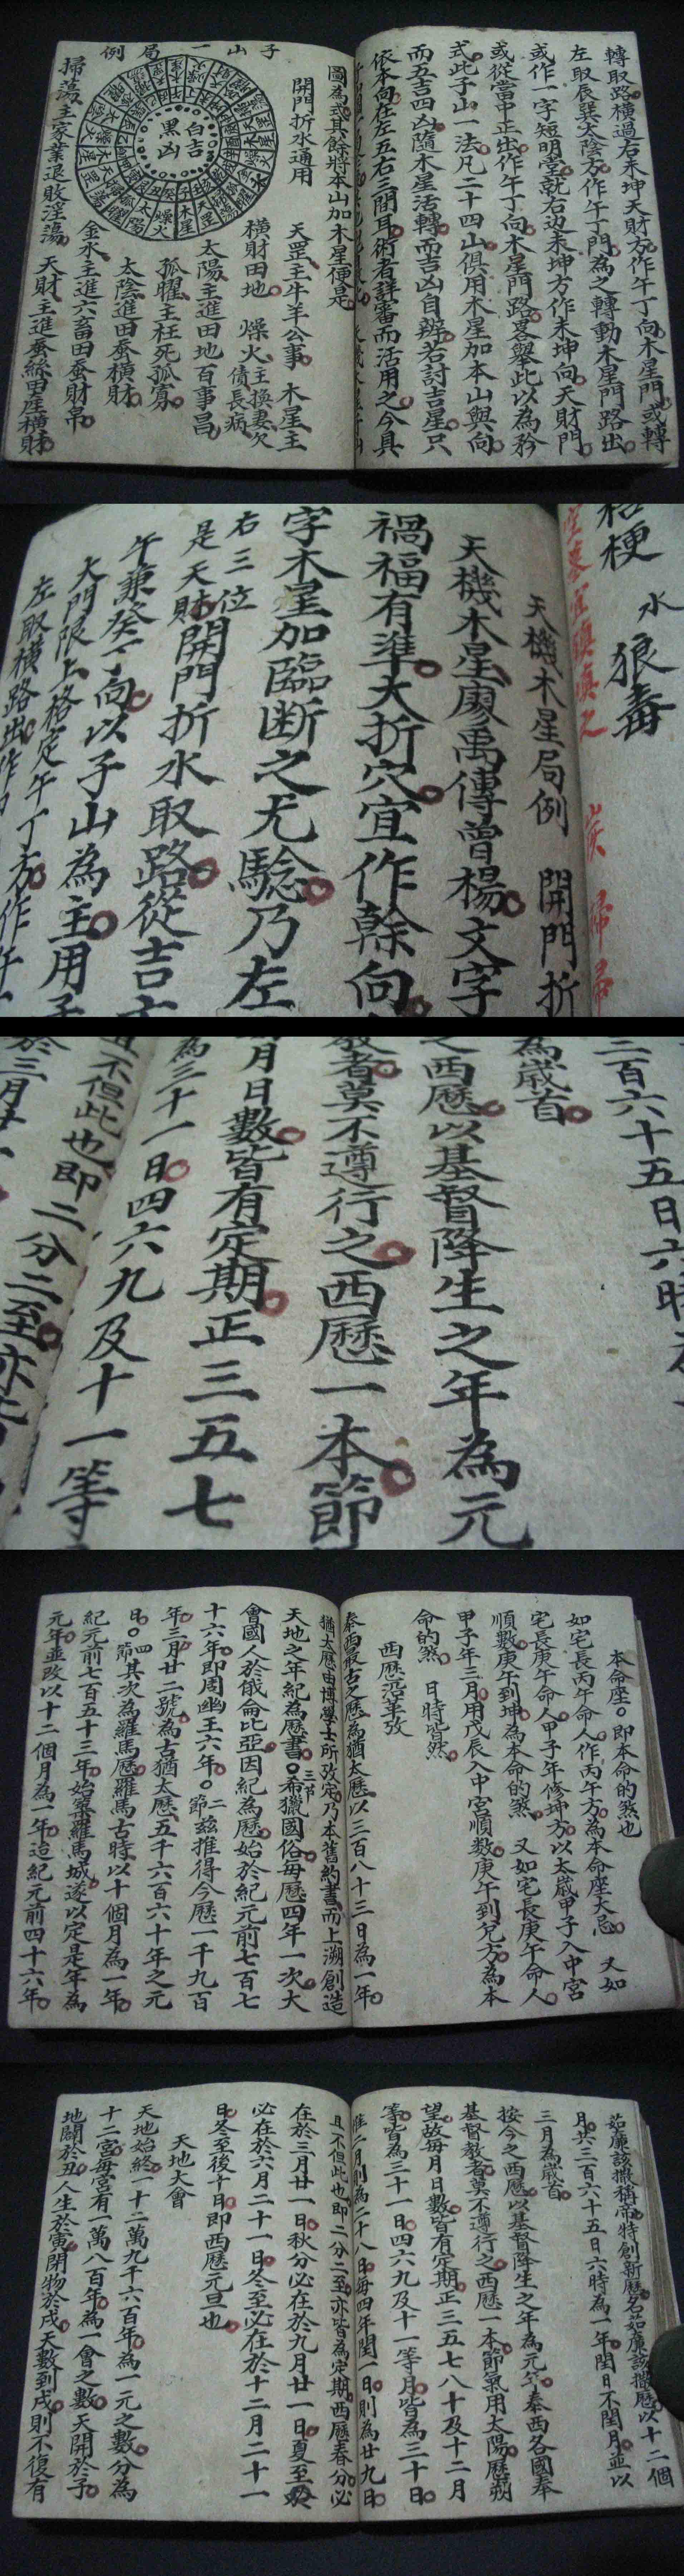 轉取路橫過右未坤天財方作午丁向木星門或轉
左取辰巽太陰方作午丁門為之轉動木星門路出
或作一字短明堂就右边未坤方作未坤向天財門
或從當中正出作午丁向木星門路畧舉此以為矜
式此子山一法凡二十四山俱用木星加本山與向
而五吉四凶隨木星活轉而吉凶自辦若討吉星只
依本向在左五右三開耳術者詳審而活用之今具
圖為式其餘將本山加木星便是
開門折水通用
子山一局例
白吉
黑凶
天罡主牛羊公事 木星主
橫財田地 燥火主換妻欠債長病
太陽主進田地百事昌
孤曜主枉死孤寡
太陰進田蚕橫財
金水主進六畜田蚕財帛
掃蕩主家業退敗淫蕩 天財主進蚕絲田產橫財
桔梗 水狼毒
天機木星局例 開門折
天機木星廖禹傳曾楊文字
禍福有準大折穴宜作餘向
字木星加臨断之尤騐乃左
右三位
是天財開門折水取路從吉
午兼癸丁向以子山為主用子
大門限上格定午丁方作午
左取橫路出作
三百六十五日六時
為歲首
之西曆以基督降生之年為元
教者莫不遵行之西曆一本節
月日數皆有定期正三五七
為三十一日四六九及十一等
且不但此也即二分二至亦
於三月廿一
本命座即本命的煞也
如宅長丙午命人作丙午方為本命座大忌 又如
宅長庚午命人甲子年修坤方以太歲甲子入中宮
順數庚午到坤為本命的煞 又如宅長庚午命人
甲子年三月用戊辰入中宮順數庚午到兌方為本
命的煞 日時皆然
西曆沿革攷
泰西最古之曆為猶太曆以三百八十三日為一年
猶大曆由博學士所攷定乃本舊約書而上溯創造
天地之年紀為曆書三节希獵國俗每曆四年一次大
會國人於俄侖比亞因紀為曆始於紀元前七百七
十六年即周幽王六年二節茲推得今曆一千九百
年三月廿二號為古猶太曆五千六百六十年之元
日四節其次為羅馬曆羅馬古時以十個月為一年
紀元前七百五十三年始築羅馬城遂以定是年為
元年並改以十二個月為一年造紀元前四十六年
茹廉該撒稱帝特創新曆名茹廉該撒曆以十二個
月共三百六十五日六時為一年閏日不閏月並以
三月為歲首
按今之西曆以基督降生之年為元年泰西各國奉
基督教者莫不遵行之西曆一本節氣用太陽曆朔
望故每月日數皆有定期正三五七八十及十二月
等皆為三十一日四六九及十一等月皆為三十日
惟二月則為二十八日每四年閏一日則為廿九日
且不但此也即二分二至亦皆為定期西曆春分必
在於三月廿一日秋分必在於九月廿一日夏至
必在於六月二十一日冬至必在於十二月二十一
日冬至後十日即西曆元旦也
天地大會
天地始終一十二萬九千六百年為一元之數分為
十二宮每宮有一萬八百年為一會之數天開於子
地闢於丑人生於寅閉物於戌天數到戌則不復有